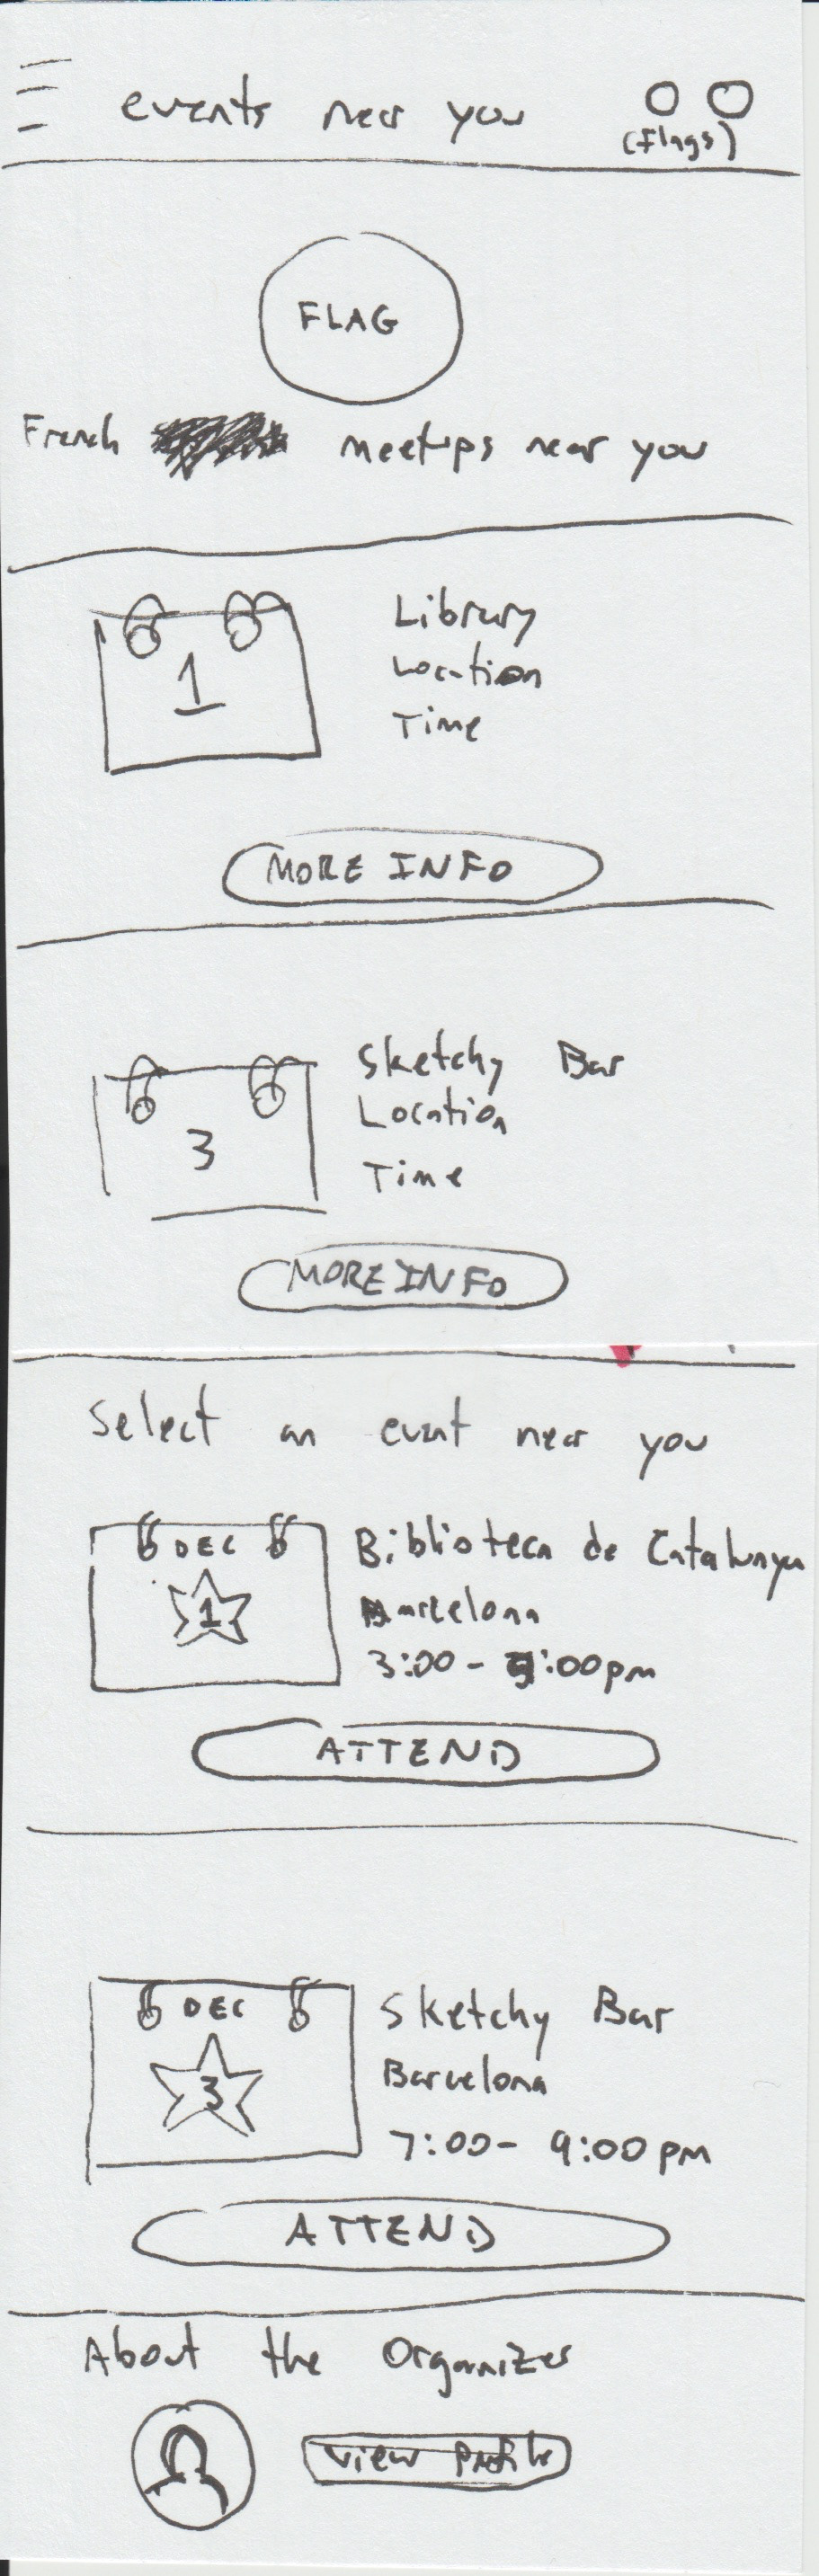 events near you
(Flags)
FLAG
French meetups near you
1
Library
Location
Time
MORE INFO
3
Sketchy Bar
Location
Time
MORE INFO
Select an event near you
DEC
1
Biblioteca de Catalunya
Barcelona
3:00 - 5:00pm
ATTEND
DEC
3
Sketchy Bar
Barcelona
7:00 - 9:00 pm
ATTEND
About the Organizer
View Profile